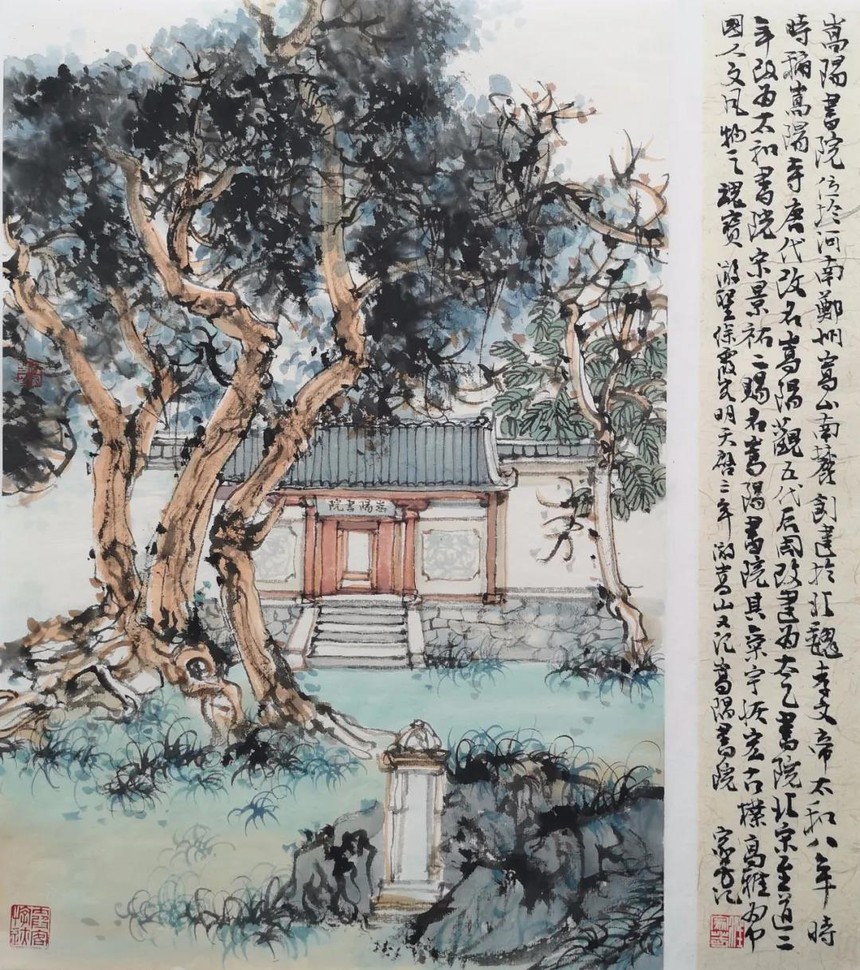 嵩陽書院位於河南鄭州嵩山南麓創建於北魏孝文帝太和八年時
時稱嵩陽寺唐代改名嵩陽觀五代后周改建为太乙書院北宋至道二
年改为太和書院宋景祐二賜名嵩陽書院其宇恢宏古樸高雅为中
國人文风物之瑰寶 游聖徐霞客明天啓三年游嵩山又记嵩陽書院 家芳记
嵩陽書院